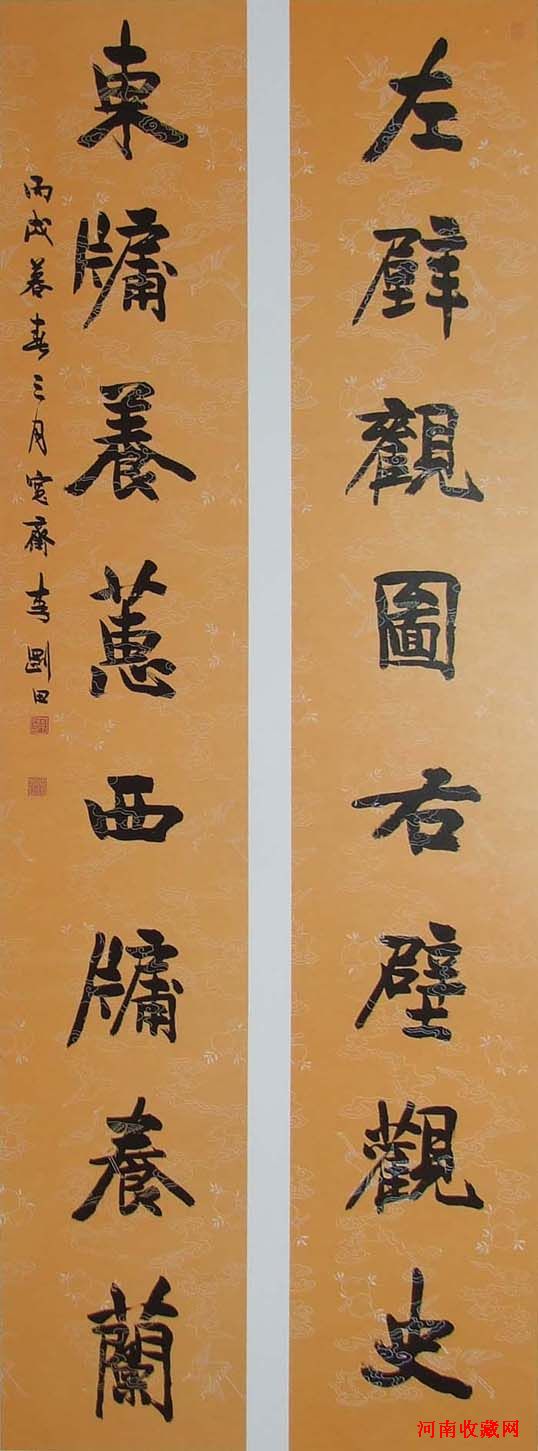 左壁觀圖右壁觀史
東牖養蕙西牖養蘭
丙戌暮春三月寬齋李剛田
河南收藏网